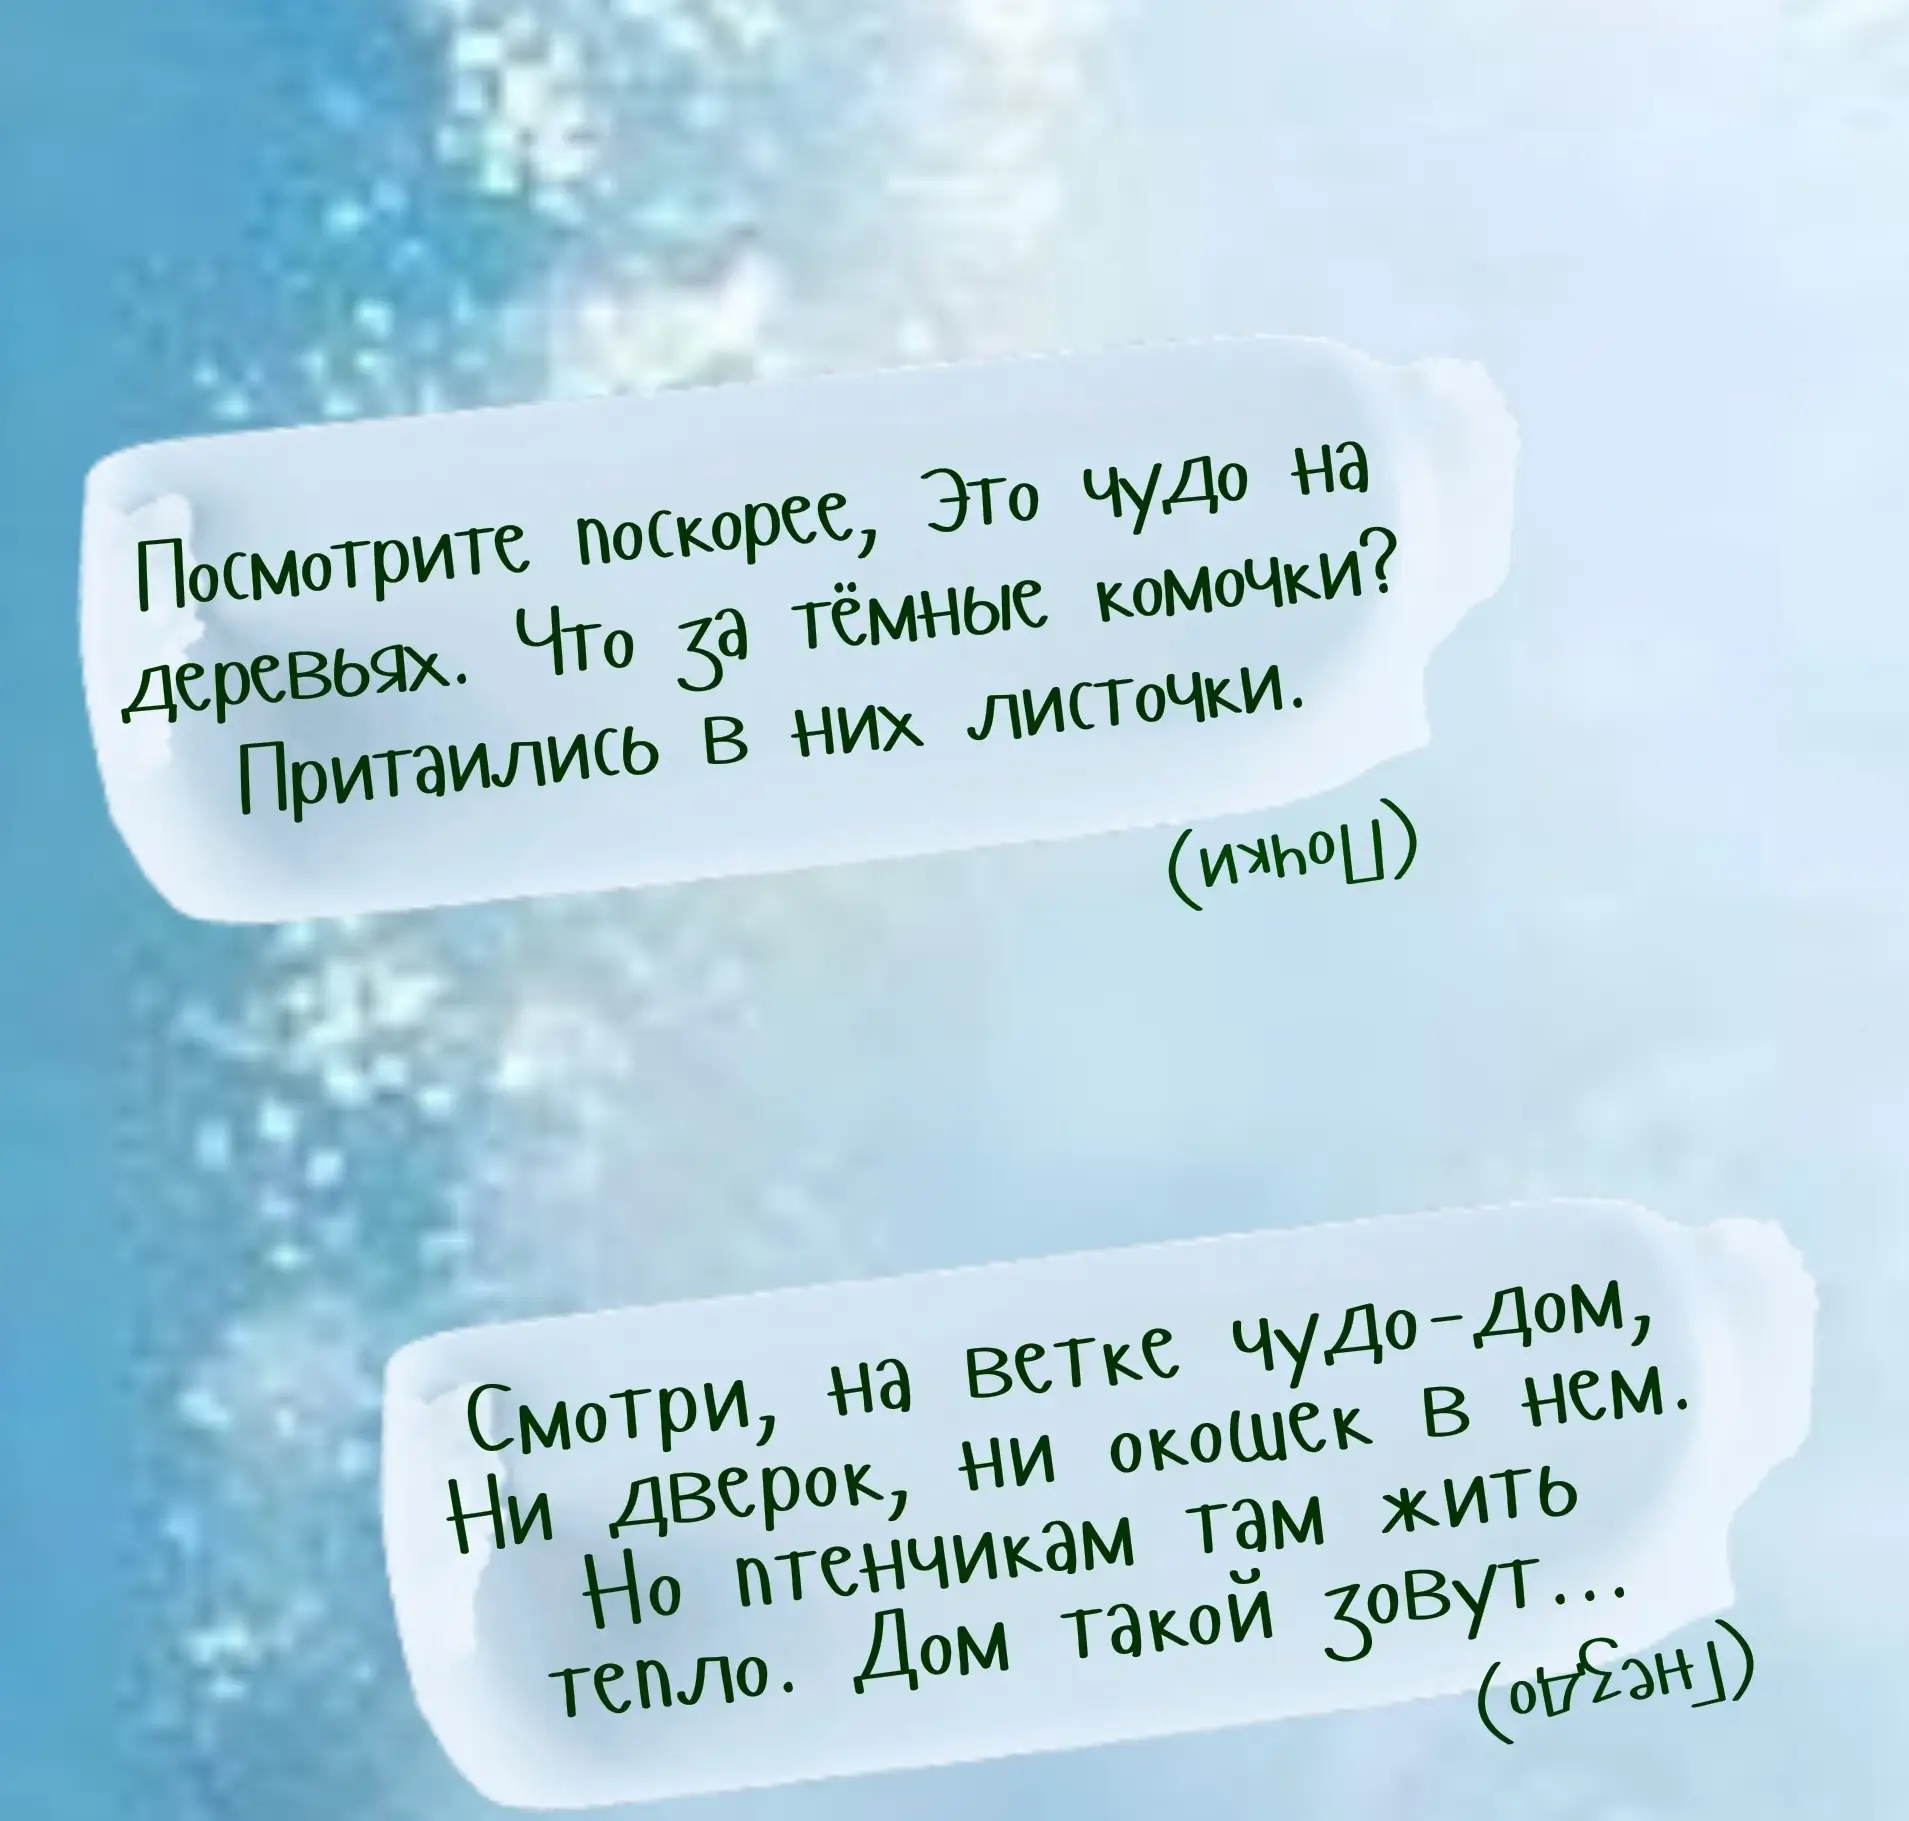 Посмотрите поскорее, Это чудо на
деревьях. Что за тёмные комочки?
Притаились в них листочки.
(Почки)
Смотри, на ветке чудо-дом,
Ни дверок, ни окошек в нем.
Но птенчикам там жить
тепло. Дом такой зовут...
(Гнездо)